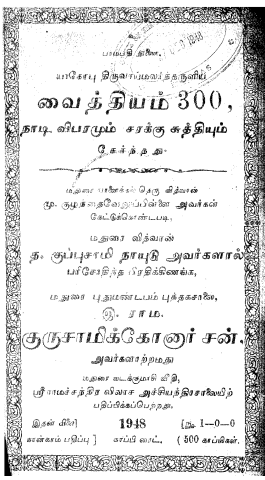 யாகோபு திருவாய்மலர்ந்தருளிய
வைத்தியம் 300,
நாடி விபரமும் சரக்கு சுத்தியும்
சேர்ந்தது.
மதுரை யானைக்கல் தெரு வித்வான்
மு. குழந்தைவேலுப்பிள்ளை அவர்கள்
கேட்டுக்கொண்டபடி,
மதுரை வித்வான்
த. குப்புசாமி நாயுடு அவர்களால்
பரிசோதித்த பிரதிக்கிணங்க,
மதுரை புதுமண்டபம் புத்தகசாலை,
இ. ராம.
குருசாமிக்கோனார் சன்,
அவர்களாற்றமது
மதுரை வடக்குமாசி வீதி,
ஸ்ரீராமச்சந்திர விலாச அச்சியந்திரசாலையிற்
பதிப்பிக்கப்பெற்றது.
இதன் விலை] 1948 [ரூ. 1—0—0
நான்காம் பதிப்பு] காப்பி ரைட். (500 காப்பிகள்.